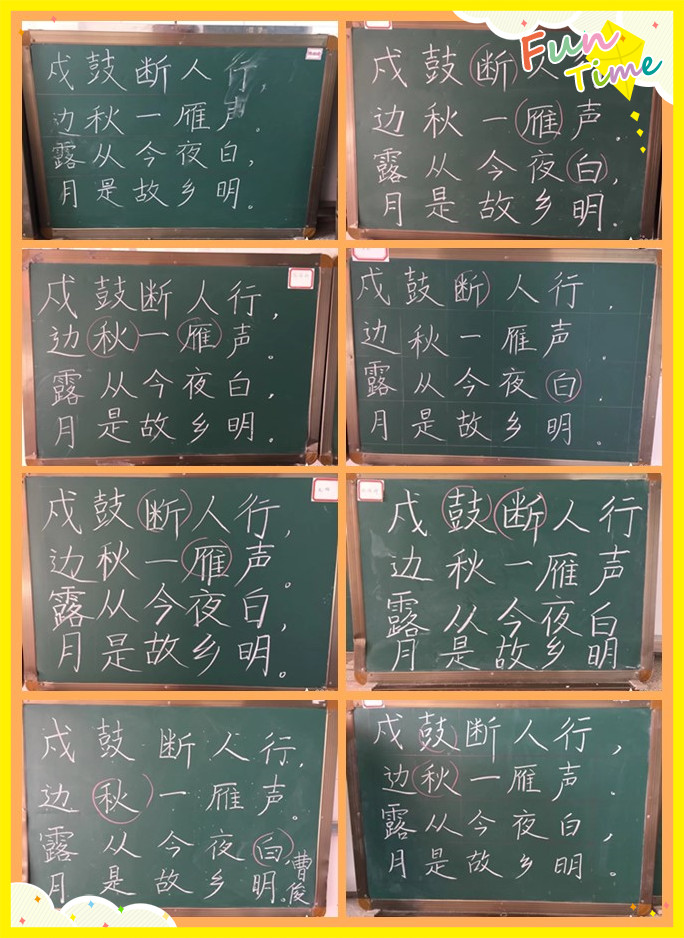 Fun
Time
戍鼓断人行，
边秋一雁声。
露从今夜白，
月是故乡明。
戍鼓断人
边秋一雁声.
露从今夜白，
月是故乡明.
戍鼓断人行，
边秋一雁声。
露从今夜白，
月是故乡明。
戍鼓断人行，
边秋一雁声。
露从今夜白。
月是故乡明。
戍鼓断人行，
边秋一雁声。
露从今夜白，
月是故乡明。
戍鼓断人行
边秋一雁声
露从今夜白
月是故乡明
戍鼓断人行，
边秋一雁声。
露从今夜白，
月是故乡明。
曹俊
戍鼓断人行，
边秋一雁声.
露从今夜白，
月是故乡明.